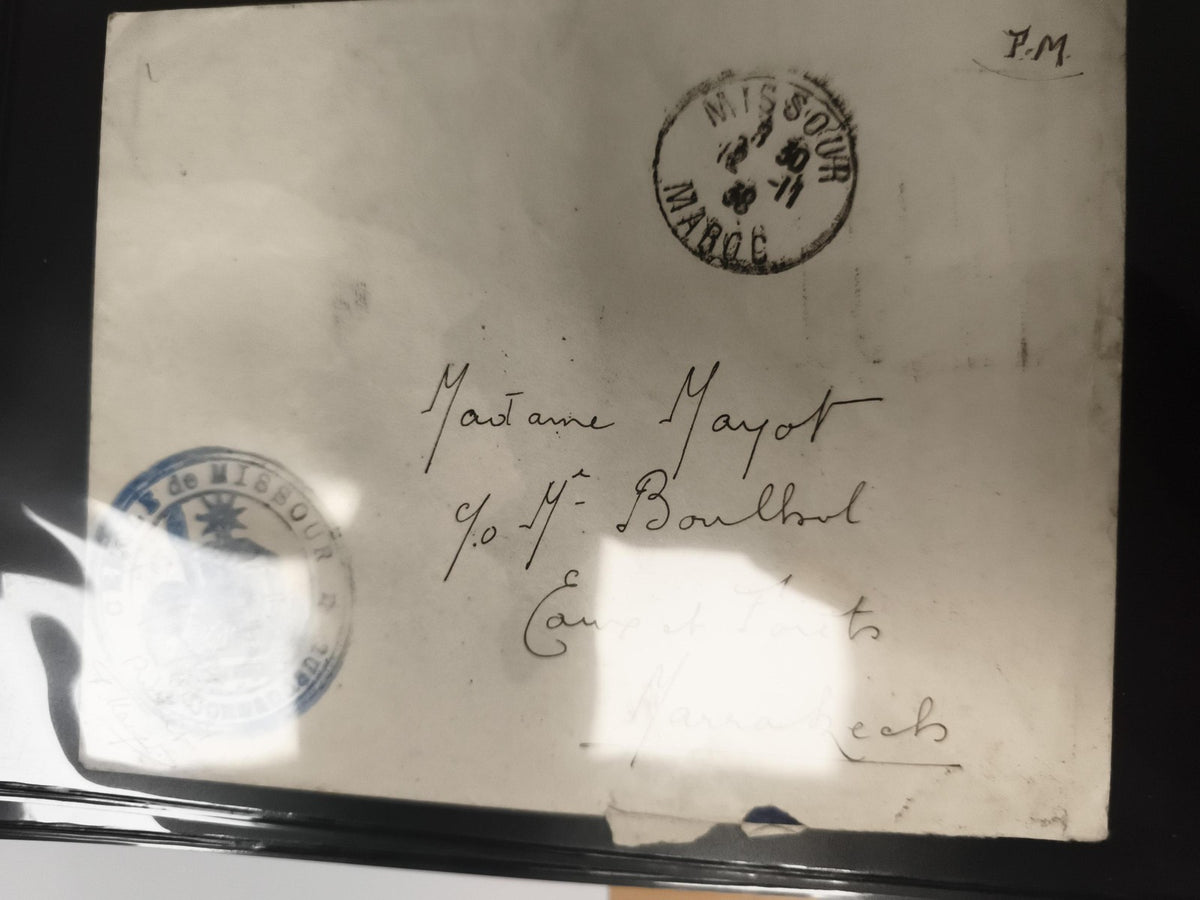 F.M.
MISSOUR
30
-11
MAROC
Madame Mayot
c/o Mr Boulhol
Eaux et Forêts
Marrakech
CERCLE de MISSOUR
Commandant